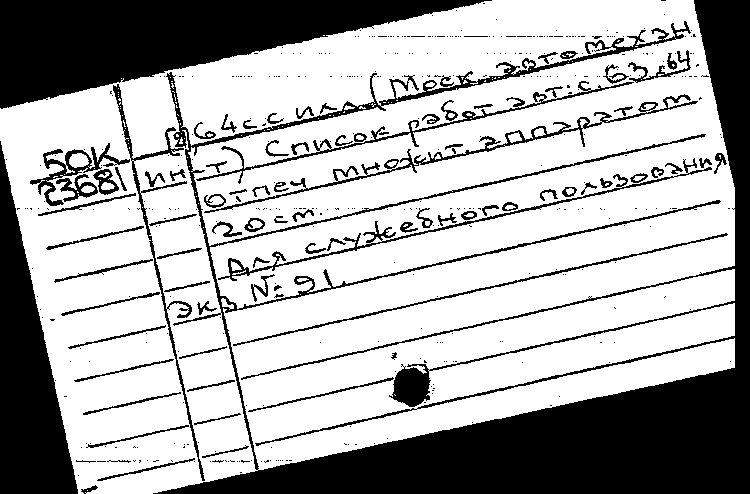 [2], 64 с. с илл (Моск. автомехан
50К
23681
ин-т) Список работ авт: с. 63, 64.
отпеч множит. аппаратом
20 ст.
Для служебного пользования
Экз. №: 91.